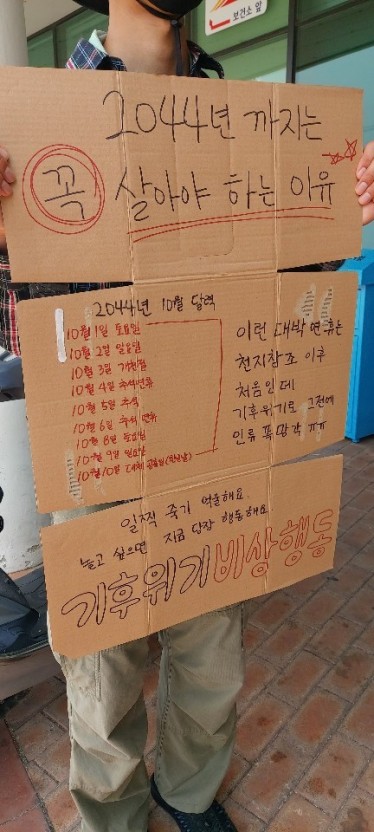 보건소 앞
2044년 까지는
꼭 살아야 하는 이유
2044년 10월 달력
10월 1일 토요일
10월 2일 일요일
10월 3일 개천절
10월 4일 추석연휴
10월 5일 추석
10월 6일 추석 연휴
10월 8일 토요일
10월 9일 일요일
10월 10일 대체 공휴일(한글날)
이런 대박 연휴는
천지창조 이후
처음인데
기후위기로 그전에
인류 폭망각 ㅠㅠ
일찍 죽기 억울해요.
놀고 싶으면 지금 당장 행동해요
기후위기비상행동